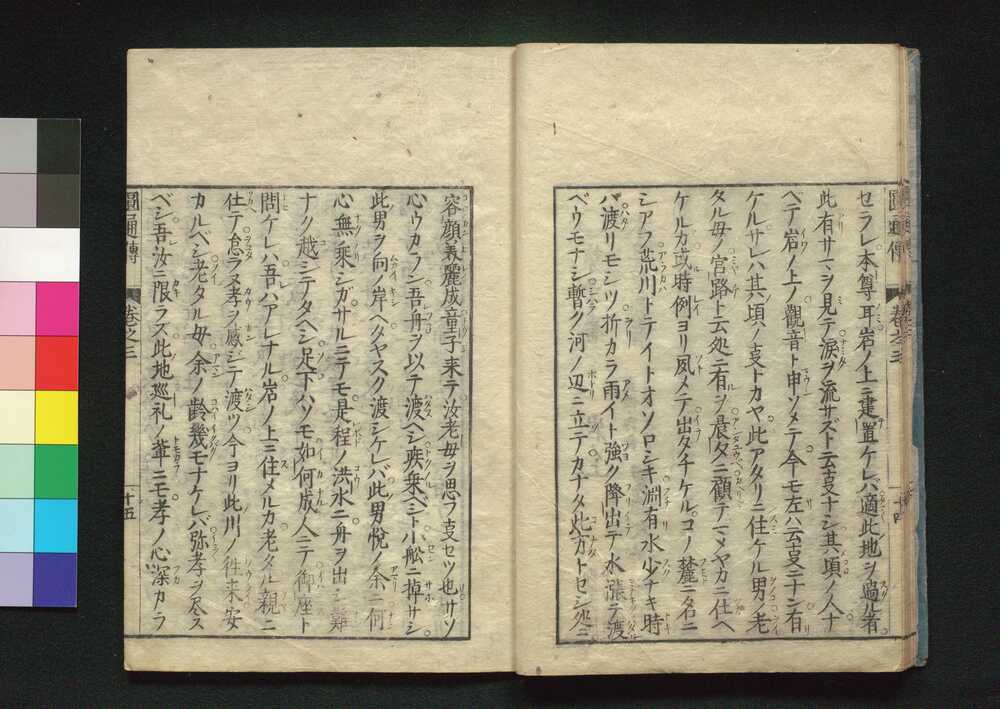 セラレ本尊耳岩ノ上ニ建置ケレバ適此地ヲ過ル者
此有サマヲ見テ涙ヲ流サズト云亥ナシ其頃ノ人ナ
ベテ岩ノ上ノ觀音ト申ツメテ今モ左ハ云亥ニナン有
ケルサレハ其頃ノ亥トカヤ此アタリニ住ケル男ノ老
タル母ノ宮路ト云処ニ有ヲ晨タニ顧テマメヤカニ仕ヘ
ケルカ或時例ヨリ夙メテ出タチケルコノ麓ニ名ニ
シアフ荒川トテイトオソロシキ淵有水少ナキ時
バ渡リモシツ折カラ雨イト強ク降出テ水漲テ渡
ベウモナシ暫ク河ノ辺ニ立テカナタ此方トセシ処ニ
圓通傳 卷之三 十四
容顔美麗成童子来テ汝老母ヲ思フ亥セツ也サソ
心ウカラン吾舟ヲ以テ渡ヘシ疾乗ベシト小舩ニ棹サシ
此男ヲ向岸ヘタヤスク渡シケレバ此男悦ノ余ニ何
心無乗シガサルニテモ是程ノ洪水ニ舟ヲ出シ難
ナク越シテタヘシ足下ハソモ如何成人ニテ御座ト
問ケレハ吾ハアレナル岩ノ上ニ住メルカ老タル親ニ
仕テ怠ラヌ孝ヲ感ジテ渡ツ今ヨリ此川ノ徃来安
カルベシ老タル母余ノ齢幾モナケレバ弥孝ヲ尽ス
ベシ吾汝ニ限ラス此地巡礼ノ輩ニモ孝ノ心深カラ
圓通傳 卷之三 十五